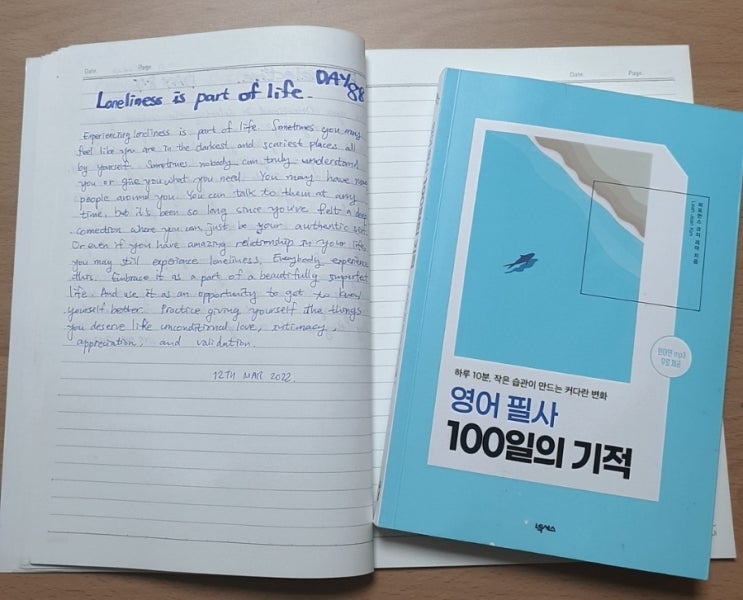 Date. Page.
DAY 88
Loneliness is part of life.
Experiencing loneliness is part of life. Sometimes you may
feel like you are in the darkest and scariest places all
by yourself. Sometimes nobody can truly understand
you or give you what you need. You may have
people around you. You can talk to them at any
time, but it's been so long since you've felt a deep
connection where you can just be your authentic self.
Or even if you have amazing relationship in your life,
you may still experience loneliness. Everybody experience
this. Embrace it as a part of a beautifully imperfect
life. And use it as an opportunity to get to know
yourself better. Practice giving yourself the things
you deserve like unconditional love, intimacy,
appreciation, and validation.
12TH MAR 2022.
Date. Page.
퍼포먼스 코치 리아 지음
원어민 mp3
무료 제공
하루 10분, 작은 습관이 만드는 커다란 변화
영어 필사
100일의 기적
넥서스